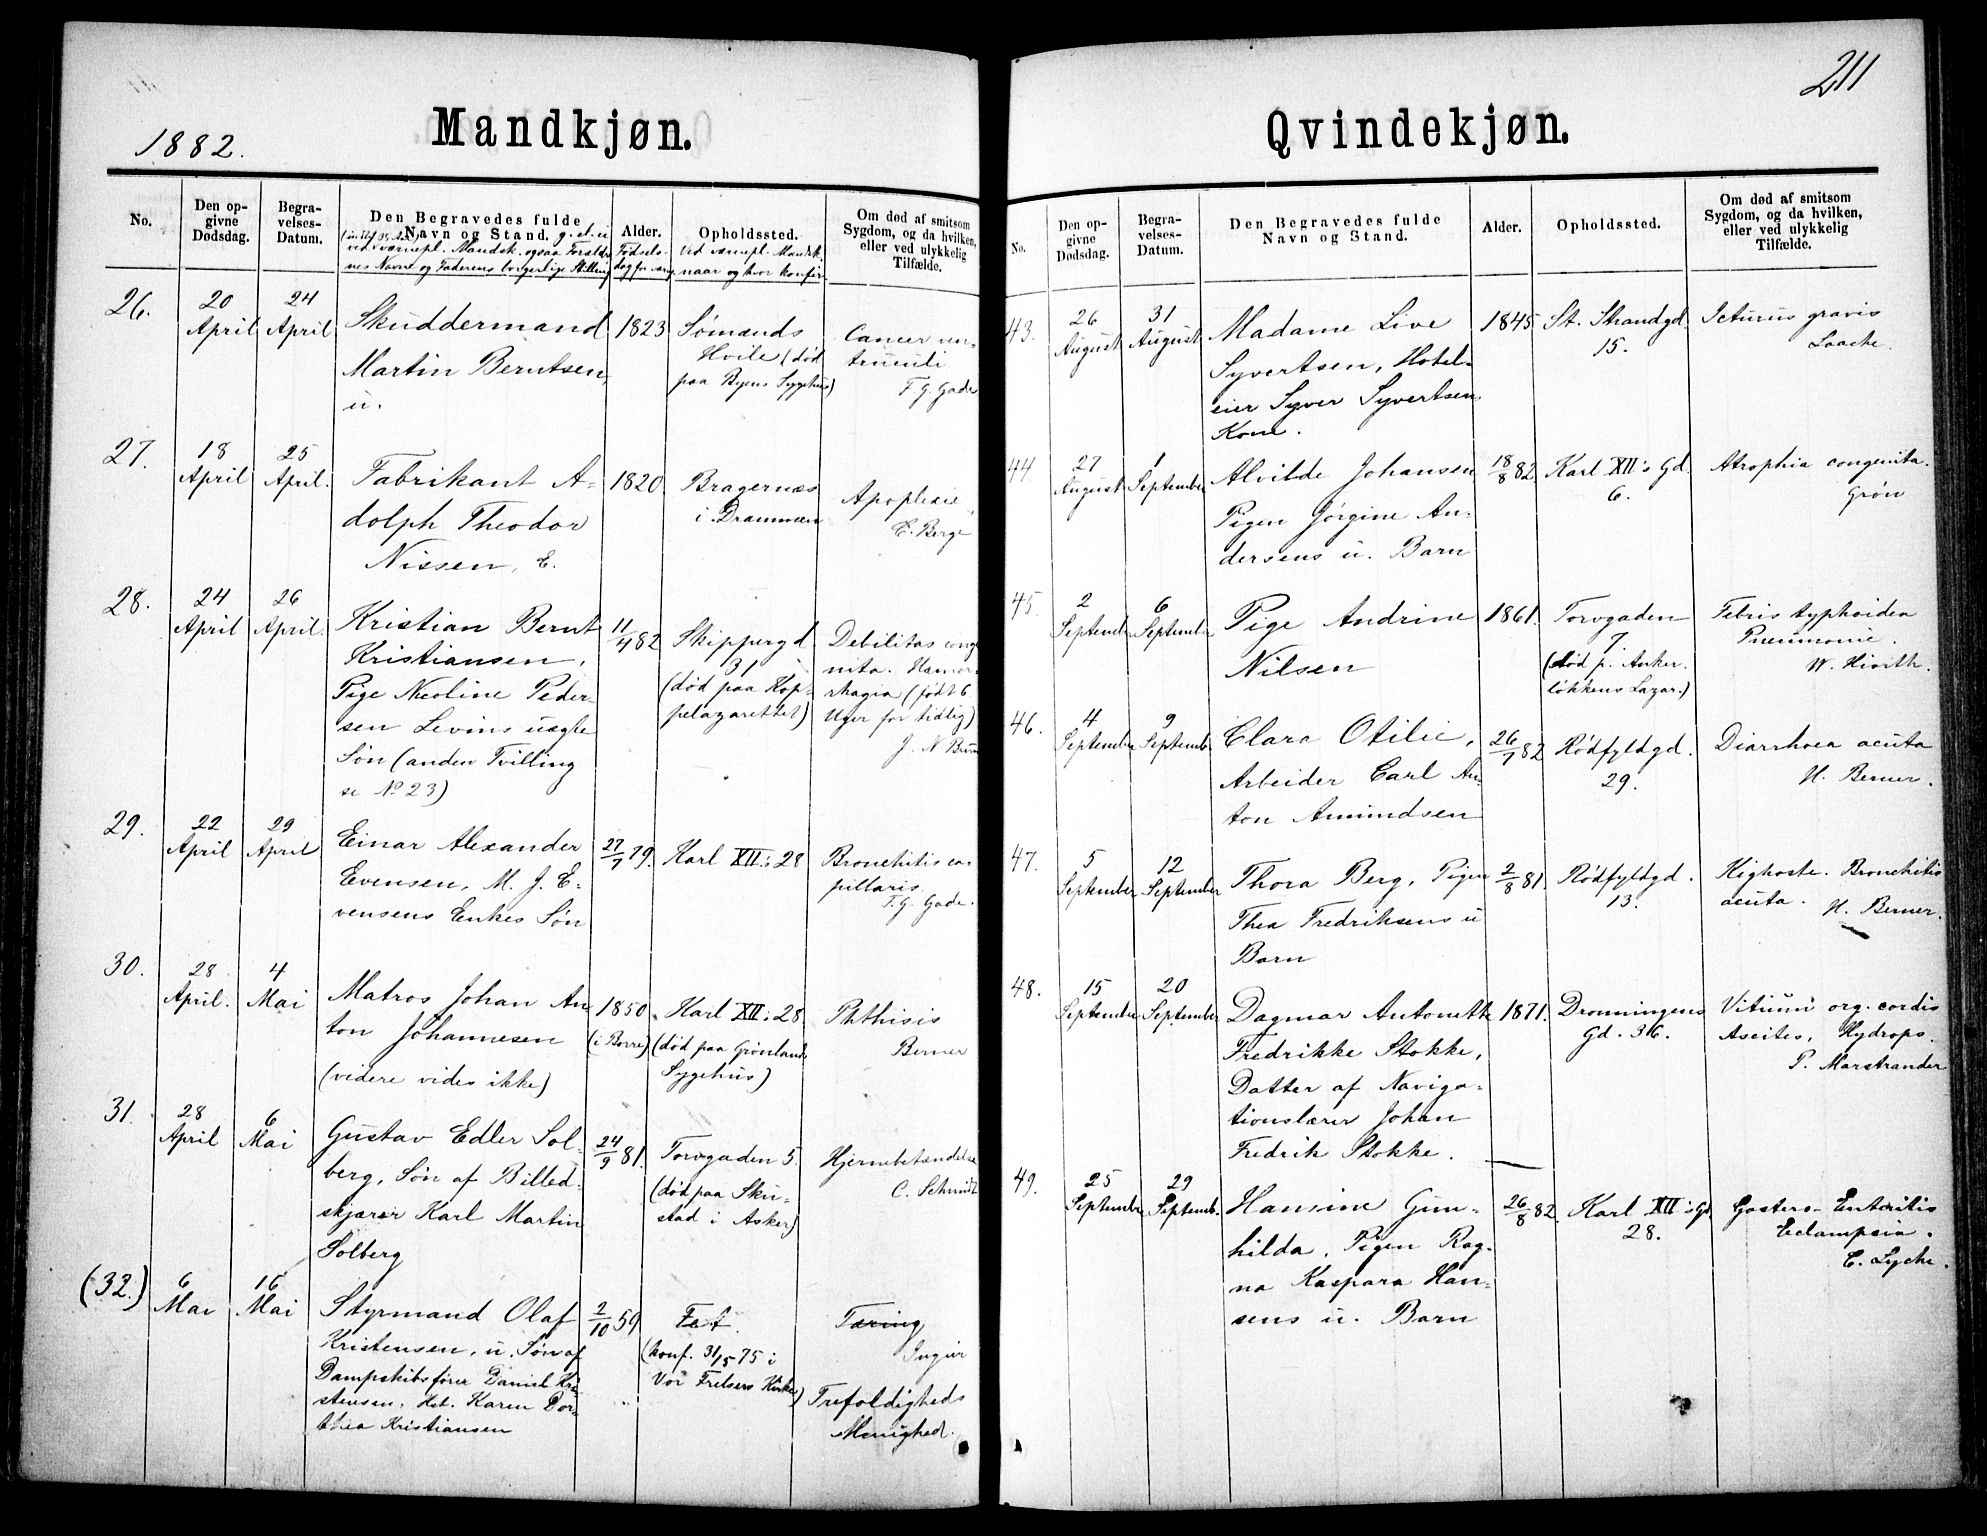 1882.
Mandkjøn.
No.
Den op-
givne
Dødsdag.
Begra-
velses-
Datum.
Den Begravedes fulde
Navn og Stand. g. el. u
ved værnepl. Mandsk. ogsaa Foræld-
nes Navne og Faderens borgerlige Stilling
Alder.
Fødsels-
dag for
Opholdssted.
Ved værnepl. Mandsk.
naar og hvor konfir
Om død af smitsom
Sygdom, og da hvilken,
eller ved ulykkelig
Tilfælde.
26.
20
April
24
April
Skuddermand
Martin Berntsen,
u.
1823
Sømænds
Hvile (død
paa Byens Sygehus)
Cancer ven-
triculi
F. G. Gade
27.
18
April
25
April.
Fabrikant A-
dolph Theodor
Nissen, E.
1820
Bragernæs
i Drammen
Apoplexie
E. Berge
28.
24
April
26
April.
Kristian Bernt
Kristiansen,
Pige Neoline Peder-
sen Levins uægte
Søn (anden Tvilling
se No 23)
11/4 82
Skippergd
31
(død paa Kop-
pelazarettet)
Debilitas conge
nita. Hæmor-
rhagia (født 6
Uger for tidlig)
J. N. Bu
29.
22
April
29
April
Einar Alexander
Evensen, M. J. E-
vensens Enkes Søn
27/7 79.
Karl XII: 28
Bronchitis ca-
pillaris.
F. G. Gade.
30.
28
April.
4
Mai
Matros Johan An-
ton Johannesen
(videre vides ikke)
1850
(i Borre)
Karl XII: 28.
(død paa Grønlands
Sygehus)
Phthisis
Berner
31.
28
April
6
Mai
Gustav Edler Sol-
berg, Søn af Billed-
skjærer Karl Martin
Solberg
24/9 81.
Torvgaden 5.
(død paa Sku-
stad i Asker)
Hjernebetændelse
C. Schmidt
(32.)
6
Mai
16
Mai
Styrmand Olaf
Kristensen, u. Søn af
Dampskibsfører Daniel Kri-
stensen. Hst. Karen Dor-
thea Kristiansen
2/10 59
Fet.
(konf. 31/5 75 i
Vor Frelsers Kirke)
Tæring
Ingier
Trefoldigheds
Menighed.
211
Qvindekjøn.
No.
Den op-
givne
Dødsdag.
Begra-
velses-
Datum.
Den Begravedes fulde
Navn og Stand.
Alder.
Opholdssted.
Om død af smitsom
Sygdom, og da hvilken,
eller ved ulykkelig
Tilfælde.
43.
26
August
31
August
Madame Live
Syvertsen, Hotel-
eier Syver Syvertsen
Kone.
1845
St. Strandgd.
15.
Icturus gravis
Laache.
44
27
August
1
September
Alvilde Johansen
Pigen Jørgine An-
dersens u. Barn
18/8 82
Karl XII's Gd.
6.
Atrophia congenita.
Grøn
45.
2
Septemb
6
Septembr
Pige Andrine
Nilsen
1861.
Torvgaden
7.
(død p. Anker-
løkkens Lazar.)
Febris typhoidea
Pneumonie.
W. Hiorth.
46.
4
Septembr
9
Septemb.
Clara Otilie,
Arbeider Carl An-
ton Amundsen
26/7 82
Rødfyldgd.
29.
Diarrhoea acuta
H. Berner.
47.
5
September
12
September
Thora Berg, Pigen
Thea Fredriksens u
Barn
2/8 81.
Rødfyldgd.
13.
Kighoste. Bronchitis
acuta. H. Berner.
48.
15
Septembr
20
September
Dagmar Antonette
Fredrikke Stokke,
Datter af Naviga-
tionslærer Johan
Fredrik Stokke.
1871.
Dronningens
Gd. 36.
Vitium org. cordis
Ascites, Hydrops.
P. Marstrander
49.
25
Septembr
29
Septemb.
Hansine Gun-
hilda, Pigen Rag-
na Kaspara Han-
sens u. Barn
26/8 82.
Karl XII's Gd.
28.
Gastero-Enteritis
Eclampsia.
C. Lyche.